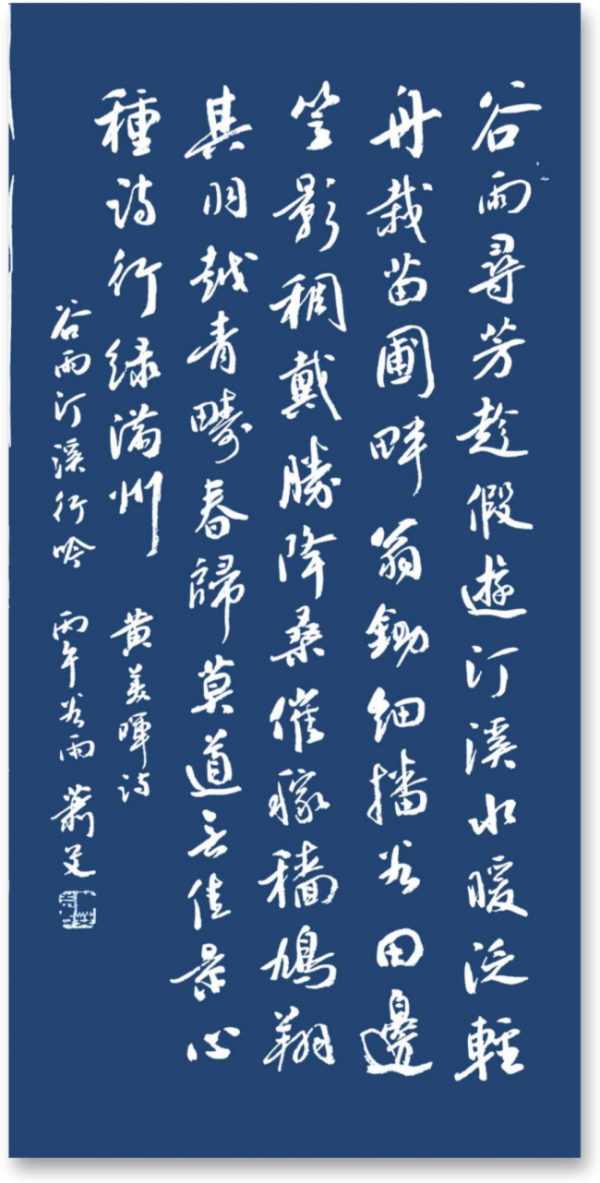 谷雨尋芳趁假遊汀溪水暖泛輕
舟栽苗圃畔翁鋤細播谷田邊
笠影稠戴勝降桑催稼穡鳩翔
其羽越青疇春歸莫道無佳景心
種詩行绿满州
黄美暉詩
谷雨汀溪行吟
丙午谷雨 蕭艾